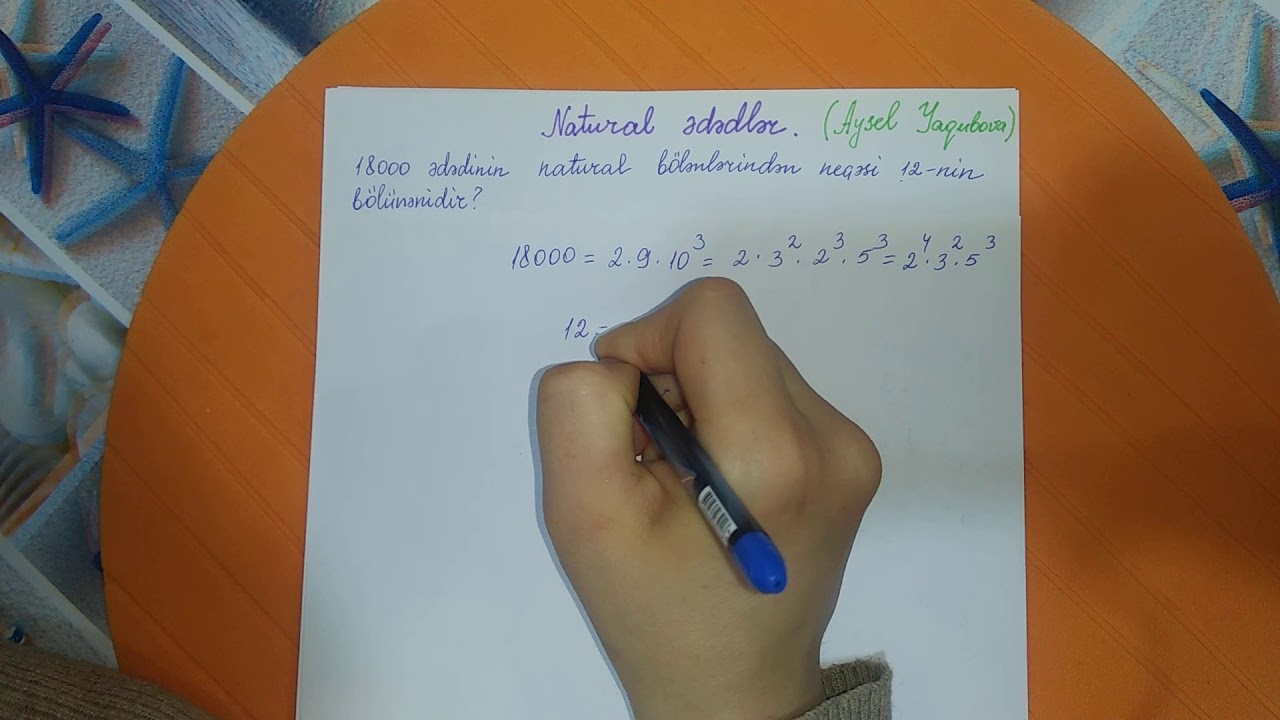 Natural ədədlər. (Aysel Yaqubova)
18000 ədədinin natural bölənlərindən neçəsi 12-nin
bölünənidir?
18000 = 2·9·10³ = 2·3²·2³·5³ = 2⁴·3²·5³
12 =